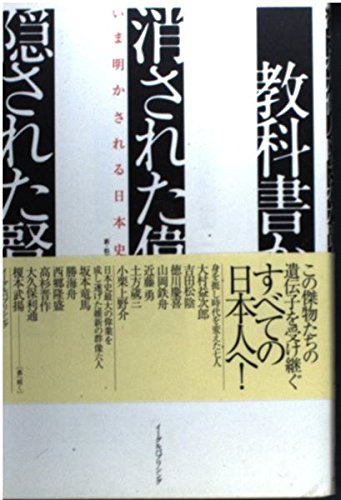 教科書か
消された偉
いま明かされる日本史
隠された賢
この傑物たちの
遺伝子を受け継ぐ
すべての
日本人へ!
身を挺し時代を変えた七人
大村益次郎
吉田松陰
徳川慶喜
山岡鉄舟
近藤勇
土方歳三
小栗上野介
日本史最大の偉業を
成し遂げた維新の群像六人
坂本竜馬
勝海舟
西郷隆盛
高杉晋作
大久保利通
榎本武揚
イーグルパブリシング
イーグルパブリシング